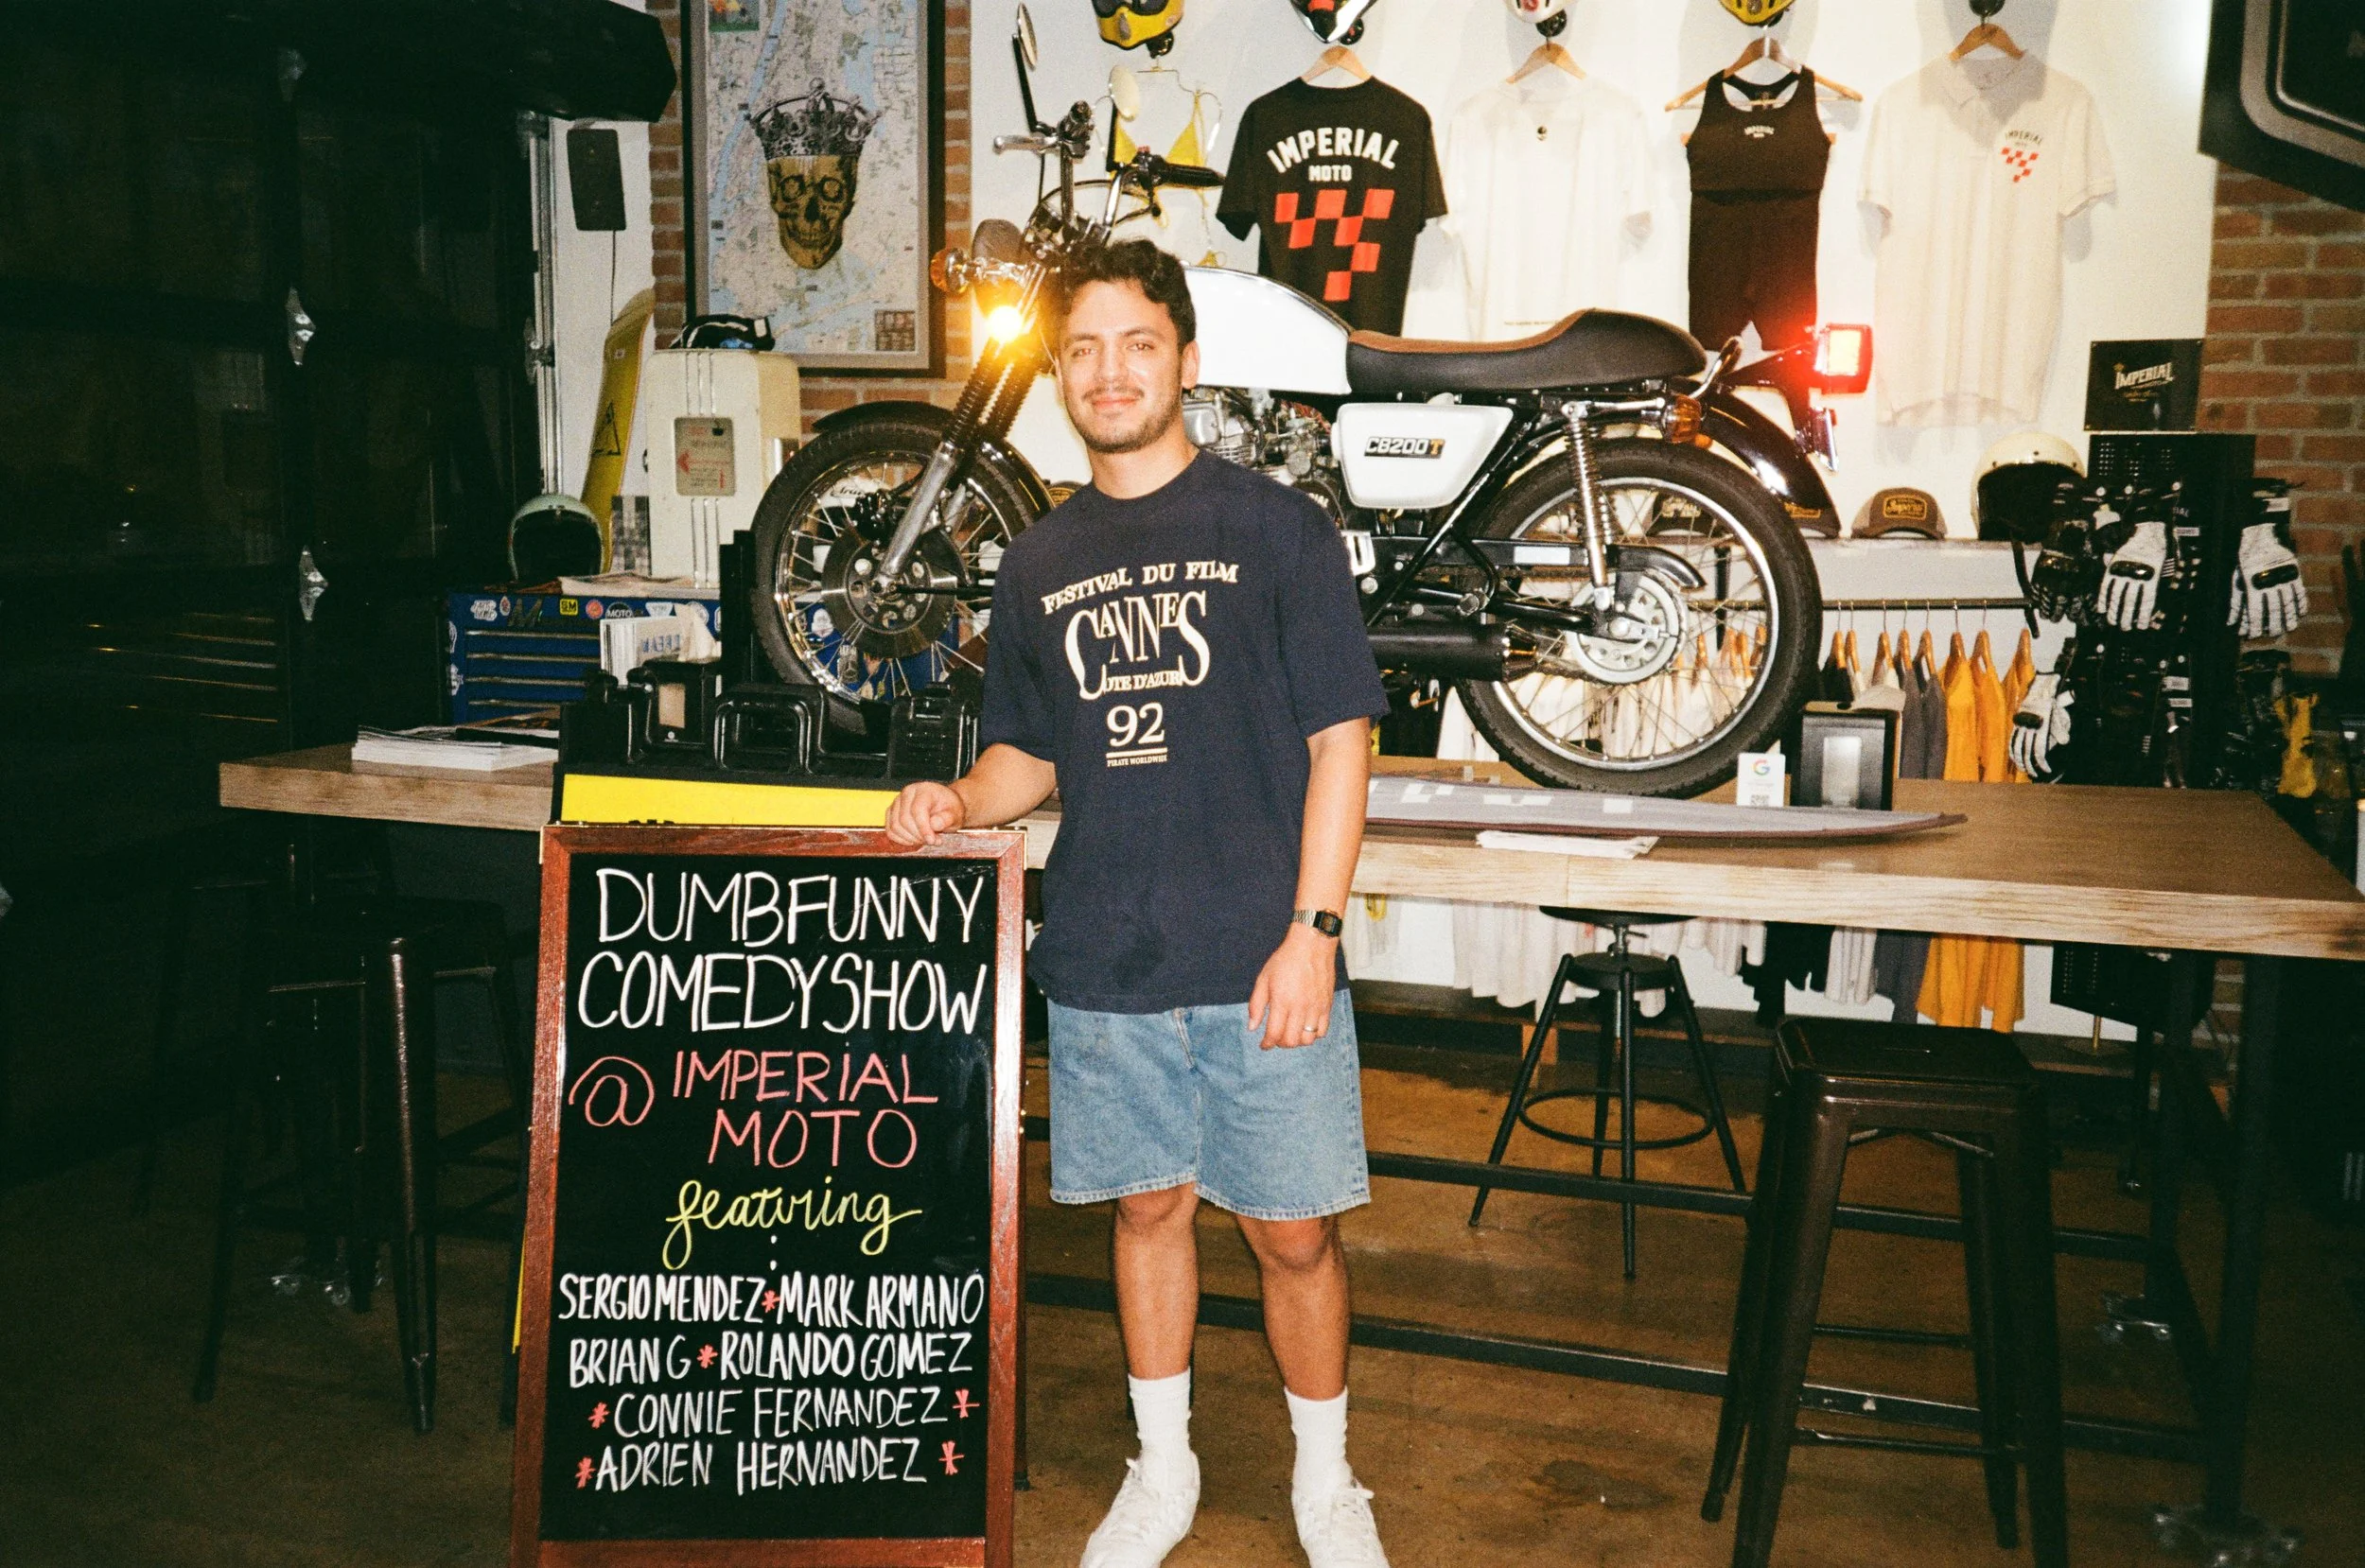 IMPERIAL
MOTO
IMPERIAL
IMPERIAL
IMPERIAL
CB200T
MOTO
FESTIVAL DU FILM
CANNES
COTE D'AZUR
92
PIRATE WORLDWIDE
G
DUMBFUNNY
COMEDY SHOW
@ IMPERIAL
MOTO
featuring
:
SERGIO MENDEZ * MARK ARMANO
BRIAN G * ROLANDO GOMEZ
* CONNIE FERNANDEZ *
* ADRIEN HERNANDEZ *